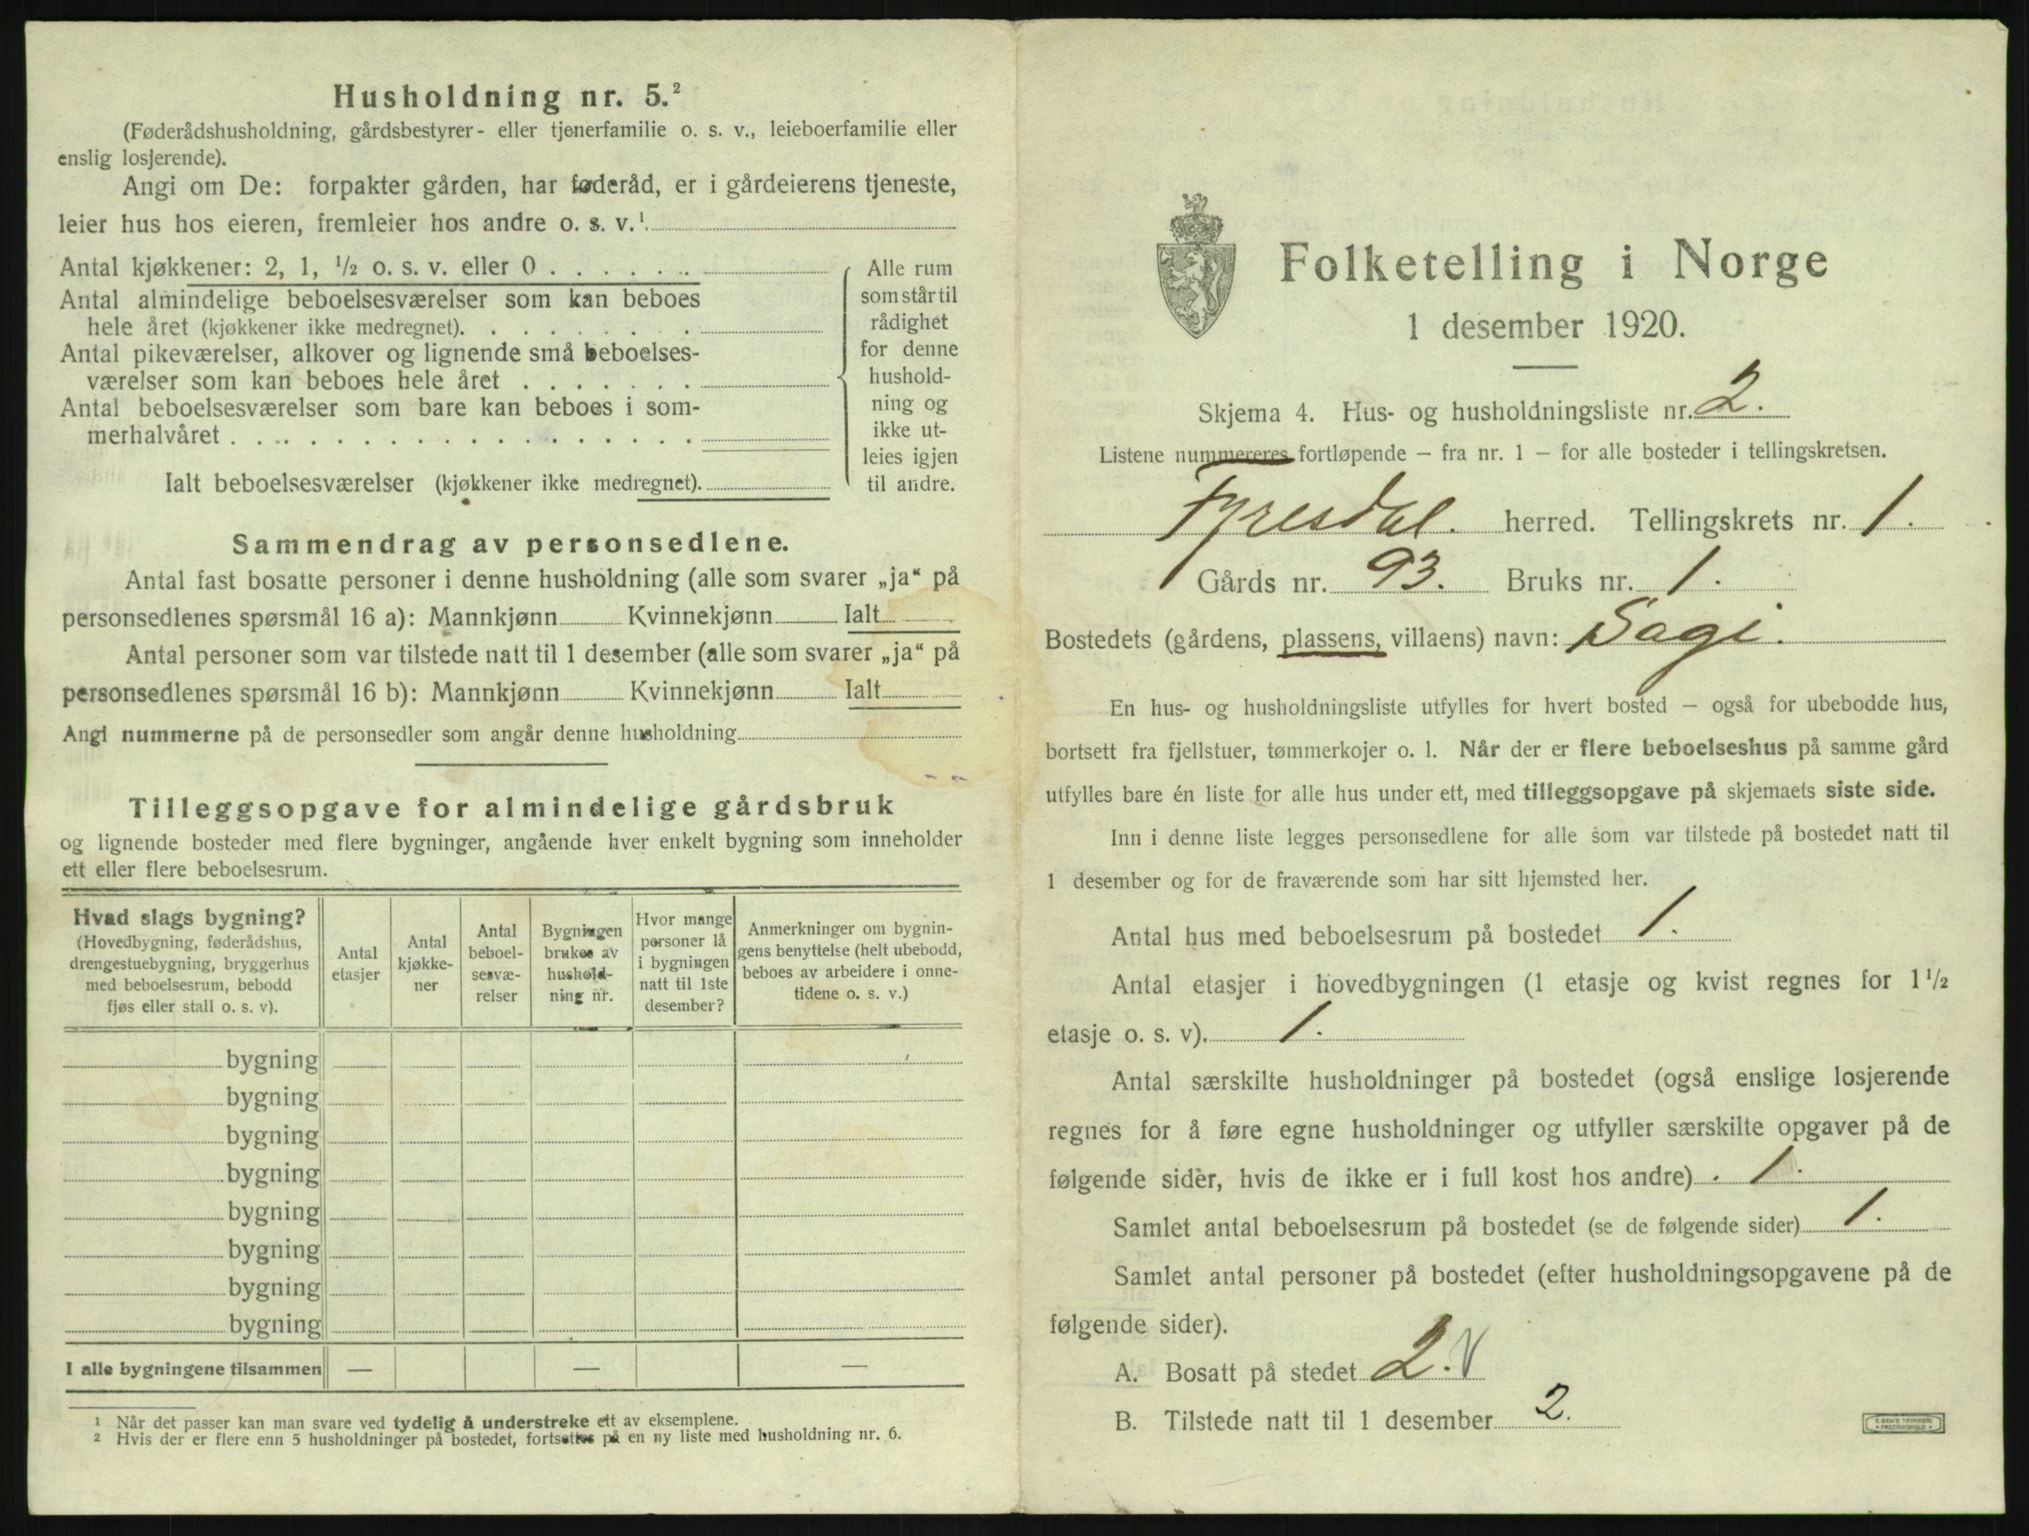 Husholdning nr. 5.²
(Føderådshusholdning, gårdsbestyrer- eller tjenerfamilie o. s. v., leieboerfamilie eller
enslig losjerende).
Angi om De: forpakter gården, har føderåd, er i gårdeierens tjeneste,
leier hus hos eieren, fremleier hos andre o. s. v.¹
Antal kjøkkener: 2, 1, ½ o. s. v. eller 0 . . . . . .
Antal almindelige beboelsesværelser som kan beboes
hele året (kjøkkener ikke medregnet). . . . . . . .
Antal pikeværelser, alkover og lignende små beboelses-
værelser som kan beboes hele året . . . . . . .
Antal beboelsesværelser som bare kan beboes i som-
merhalvåret . . . . . . . . . . . . . . . . . .
Ialt beboelsesværelser (kjøkkener ikke medregnet).
Alle rum
som står til
rådighet
for denne
hushold-
ning og
ikke ut-
leies igjen
til andre.
Sammendrag av personsedlene.
Antal fast bosatte personer i denne husholdning (alle som svarer „ja“ på
personsedlenes spørsmål 16 a): Mannkjønn Kvinnekjønn Ialt
Antal personer som var tilstede natt til 1 desember (alle som svarer „ja“ på
personsedlenes spørsmål 16 b): Mannkjønn Kvinnekjønn Ialt
Angi nummerne på de personsedler som angår denne husholdning
Tilleggsopgave for almindelige gårdsbruk
og lignende bosteder med flere bygninger, angående hver enkelt bygning som inneholder
ett eller flere beboelsesrum.
Hvad slags bygning?
(Hovedbygning, føderådshus,
drengestuebygning, bryggerhus
med beboelsesrum, bebodd
fjøs eller stall o. s. v).
Antal
etasjer
Antal
kjøkke-
ner
Antal
beboel-
sesvæ-
relser
Bygningen
brukes av
hushold-
ning nr.
Hvor mange
personer lå
i bygningen
natt til 1ste
desember?
Anmerkninger om bygnin-
gens benyttelse (helt ubebodd,
beboes av arbeidere i onne-
tidene o. s. v.)
bygning
bygning
bygning
bygning
bygning
bygning
bygning
bygning
I alle bygningene tilsammen — — —
¹ Når det passer kan man svare ved tydelig å understreke ett av eksemplene.
² Hvis der er flere enn 5 husholdninger på bostedet, fortsettes på en ny liste med husholdning nr. 6.
Folketelling i Norge
1 desember 1920.
Skjema 4. Hus- og husholdningsliste nr. 2.
Listene nummereres fortløpende — fra nr. 1 — for alle bosteder i tellingskretsen.
Fyresdal. herred. Tellingskrets nr. 1.
Gårds nr. 93. Bruks nr. 1.
Bostedets (gårdens, plassens, villaens) navn: Sagi.
En hus- og husholdningsliste utfylles for hvert bosted — også for ubebodde hus,
bortsett fra fjellstuer, tømmerkojer o. l. Når der er flere beboelseshus på samme gård
utfylles bare én liste for alle hus under ett, med tilleggsopgave på skjemaets siste side.
Inn i denne liste legges personsedlene for alle som var tilstede på bostedet natt til
1 desember og for de fraværende som har sitt hjemsted her.
Antal hus med beboelsesrum på bostedet 1.
Antal etasjer i hovedbygningen (1 etasje og kvist regnes for 1½
etasje o. s. v). 1.
Antal særskilte husholdninger på bostedet (også enslige losjerende
regnes for å føre egne husholdninger og utfyller særskilte opgaver på de
følgende sider, hvis de ikke er i full kost hos andre) . 1.
Samlet antal beboelsesrum på bostedet (se de følgende sider) 1.
Samlet antal personer på bostedet (efter husholdningsopgavene på de
følgende sider).
A. Bosatt på stedet 2. V
B. Tilstede natt til 1 desember 2.